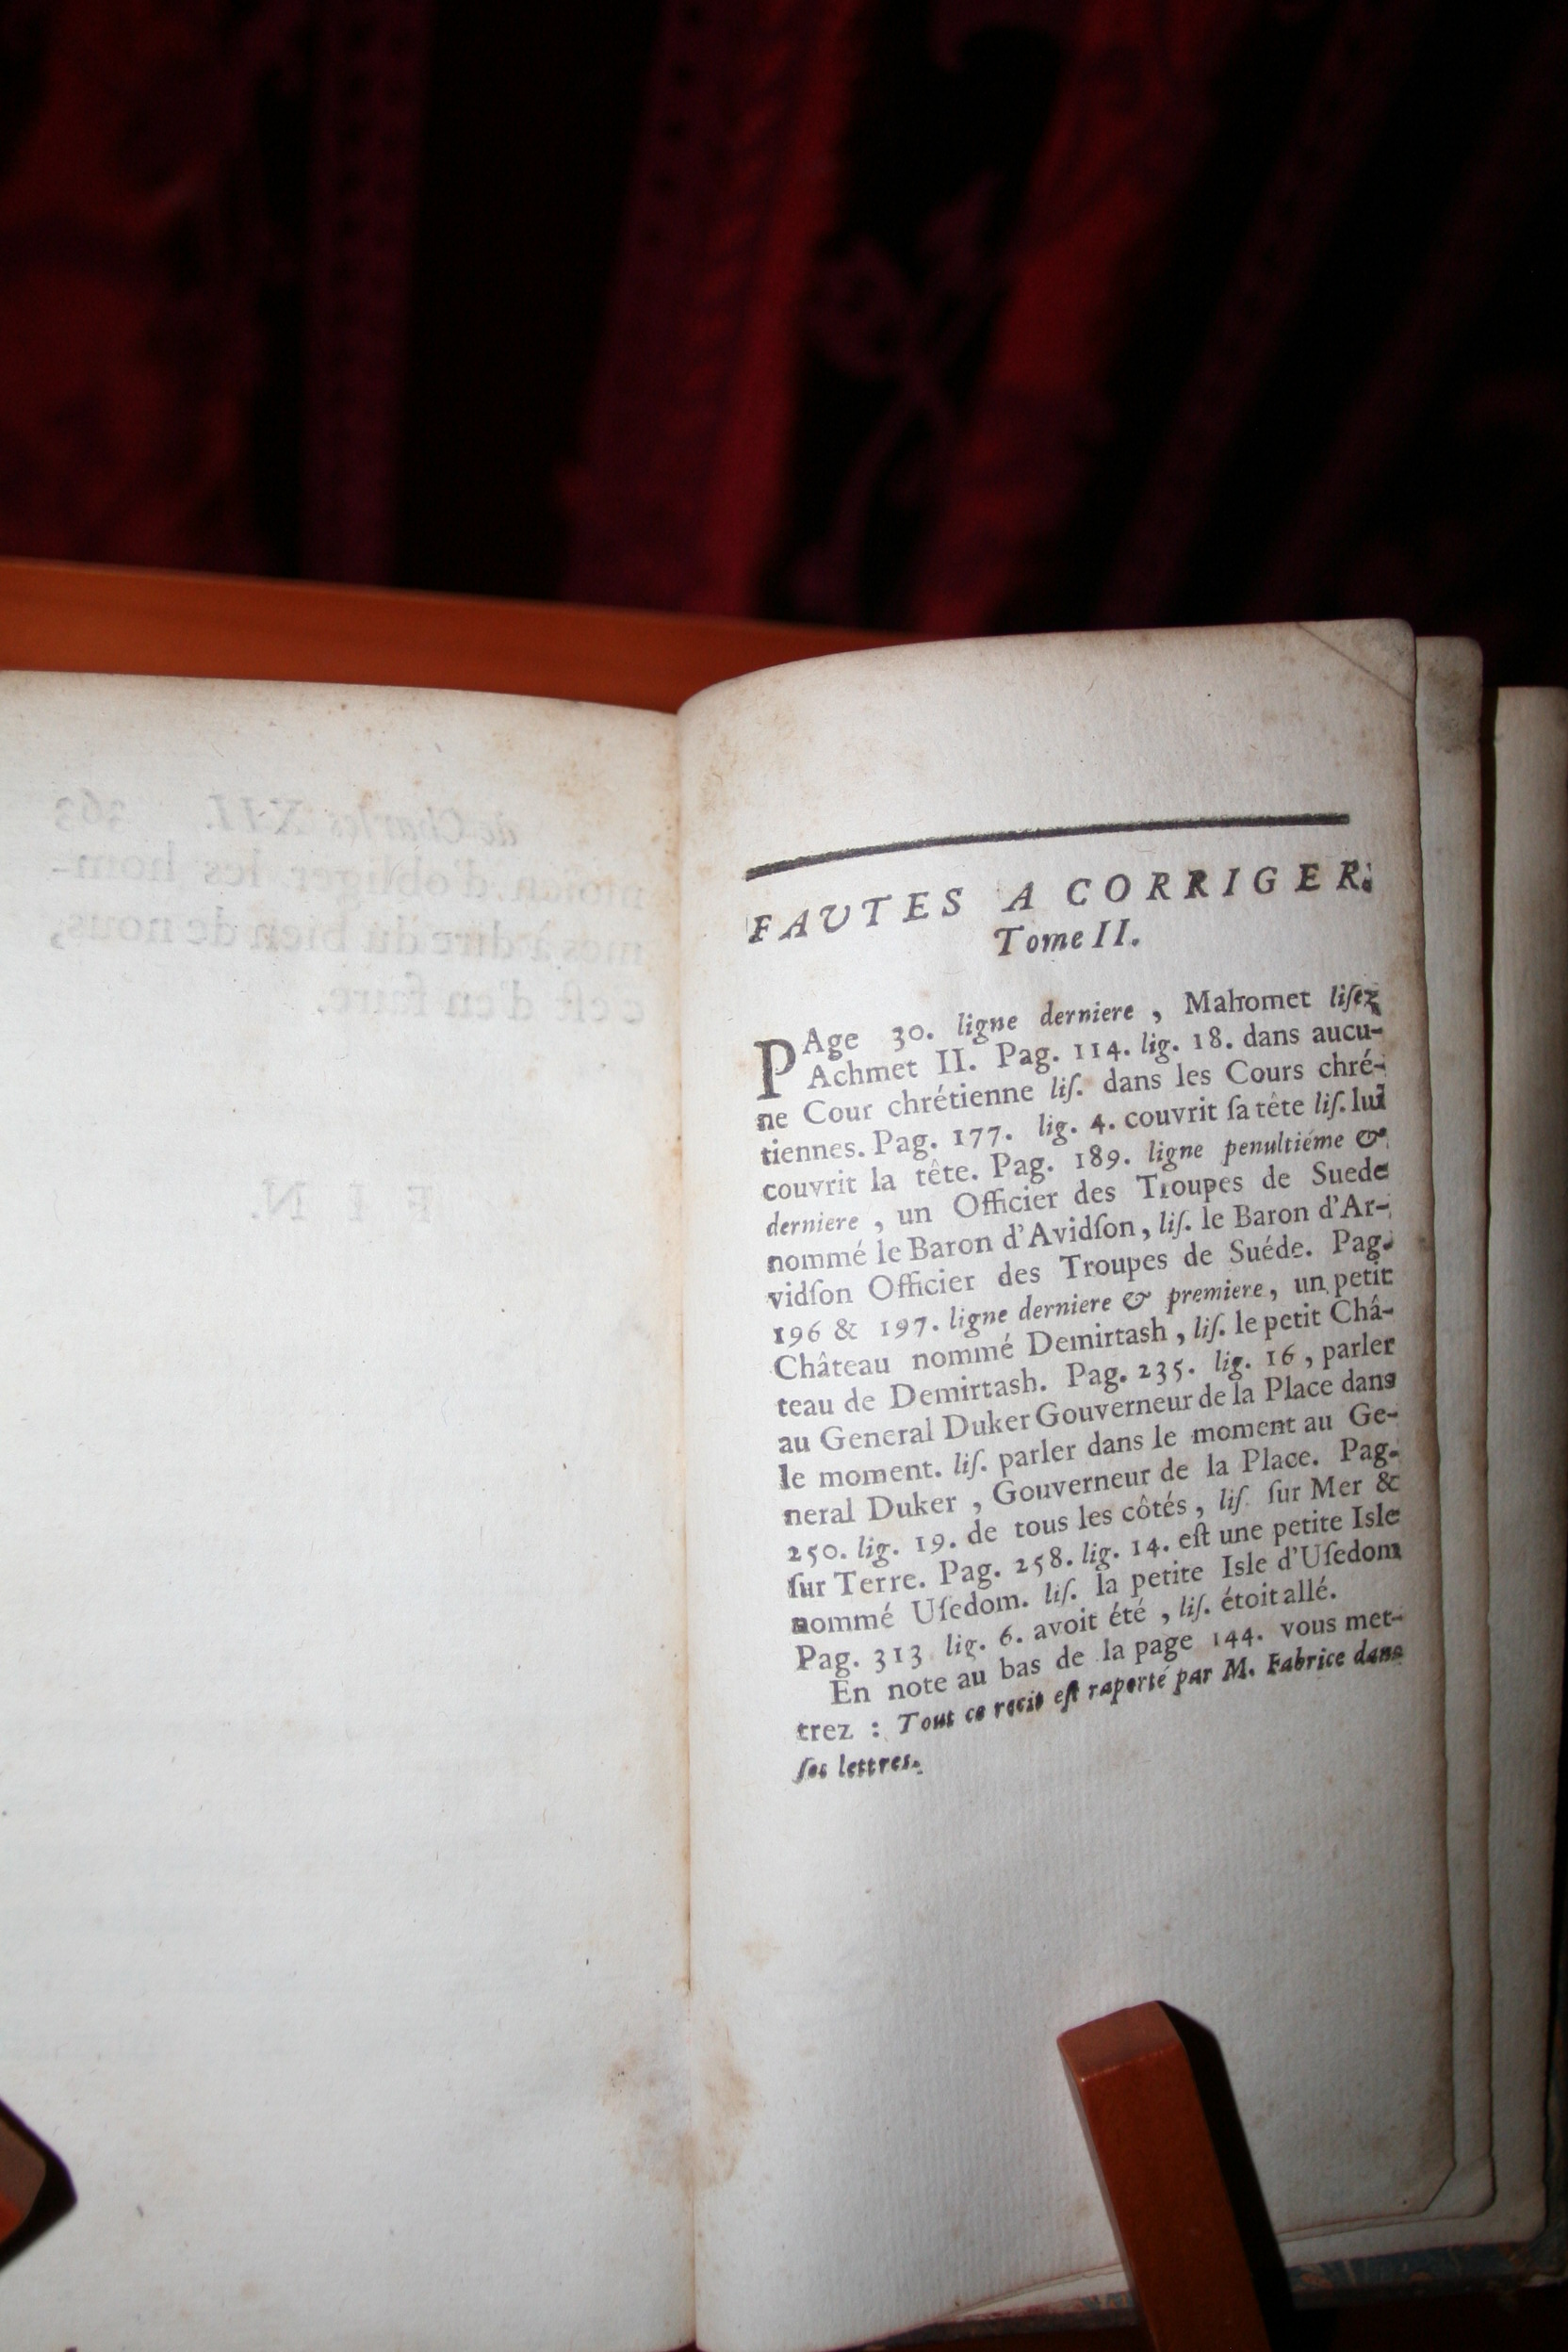 de Charles XII. 363
moïen d'obliger les hom-
mes à dire du bien de nous,
c'est d'en faire.
FIN.
FAUTES A CORRIGER.
Tome II.
PAge 30. ligne derniere, Mahomet lisez
Achmet II. Pag. 114. lig. 18. dans aucu-
ne Cour chrétienne liſ. dans les Cours chré-
tiennes. Pag. 177. lig. 4. couvrit ſa tête liſ. lui
couvrit la tête. Pag. 189. ligne penultiéme &
derniere, un Officier des Troupes de Suede
nommé le Baron d'Avidſon, liſ. le Baron d'Ar-
vidſon Officier des Troupes de Suéde. Pag.
196 & 197. ligne derniere & premiere, un petit
Château nommé Demirtash, liſ. le petit Châ-
teau de Demirtash. Pag. 235. lig. 16, parler
au General Duker Gouverneur de la Place dans
le moment. liſ. parler dans le moment au Ge-
neral Duker, Gouverneur de la Place. Pag.
250. lig. 19. de tous les côtés, liſ. ſur Mer &
ſur Terre. Pag. 258. lig. 14. eſt une petite Isle
nommé Uſedom. liſ. la petite Isle d'Uſedom
Pag. 313 lig. 6. avoit été, liſ. étoit allé.
En note au bas de la page 144. vous met-
trez : Tout ce recit eſt raporté par M. Fabrice dans
ſes lettres.